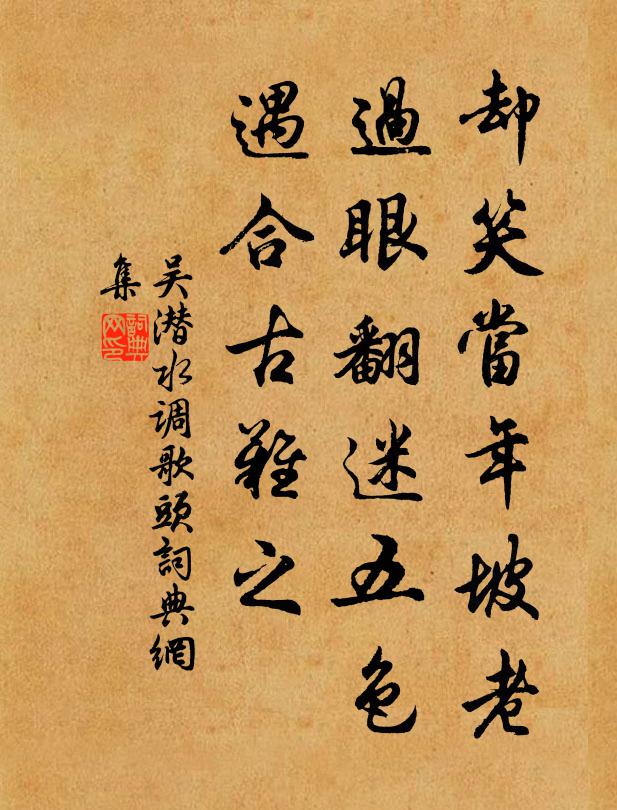 却笑當年坡老
過眼翻迷五色
遇合古難之
吴潜水调歌頭詞典網
集
詞典網印